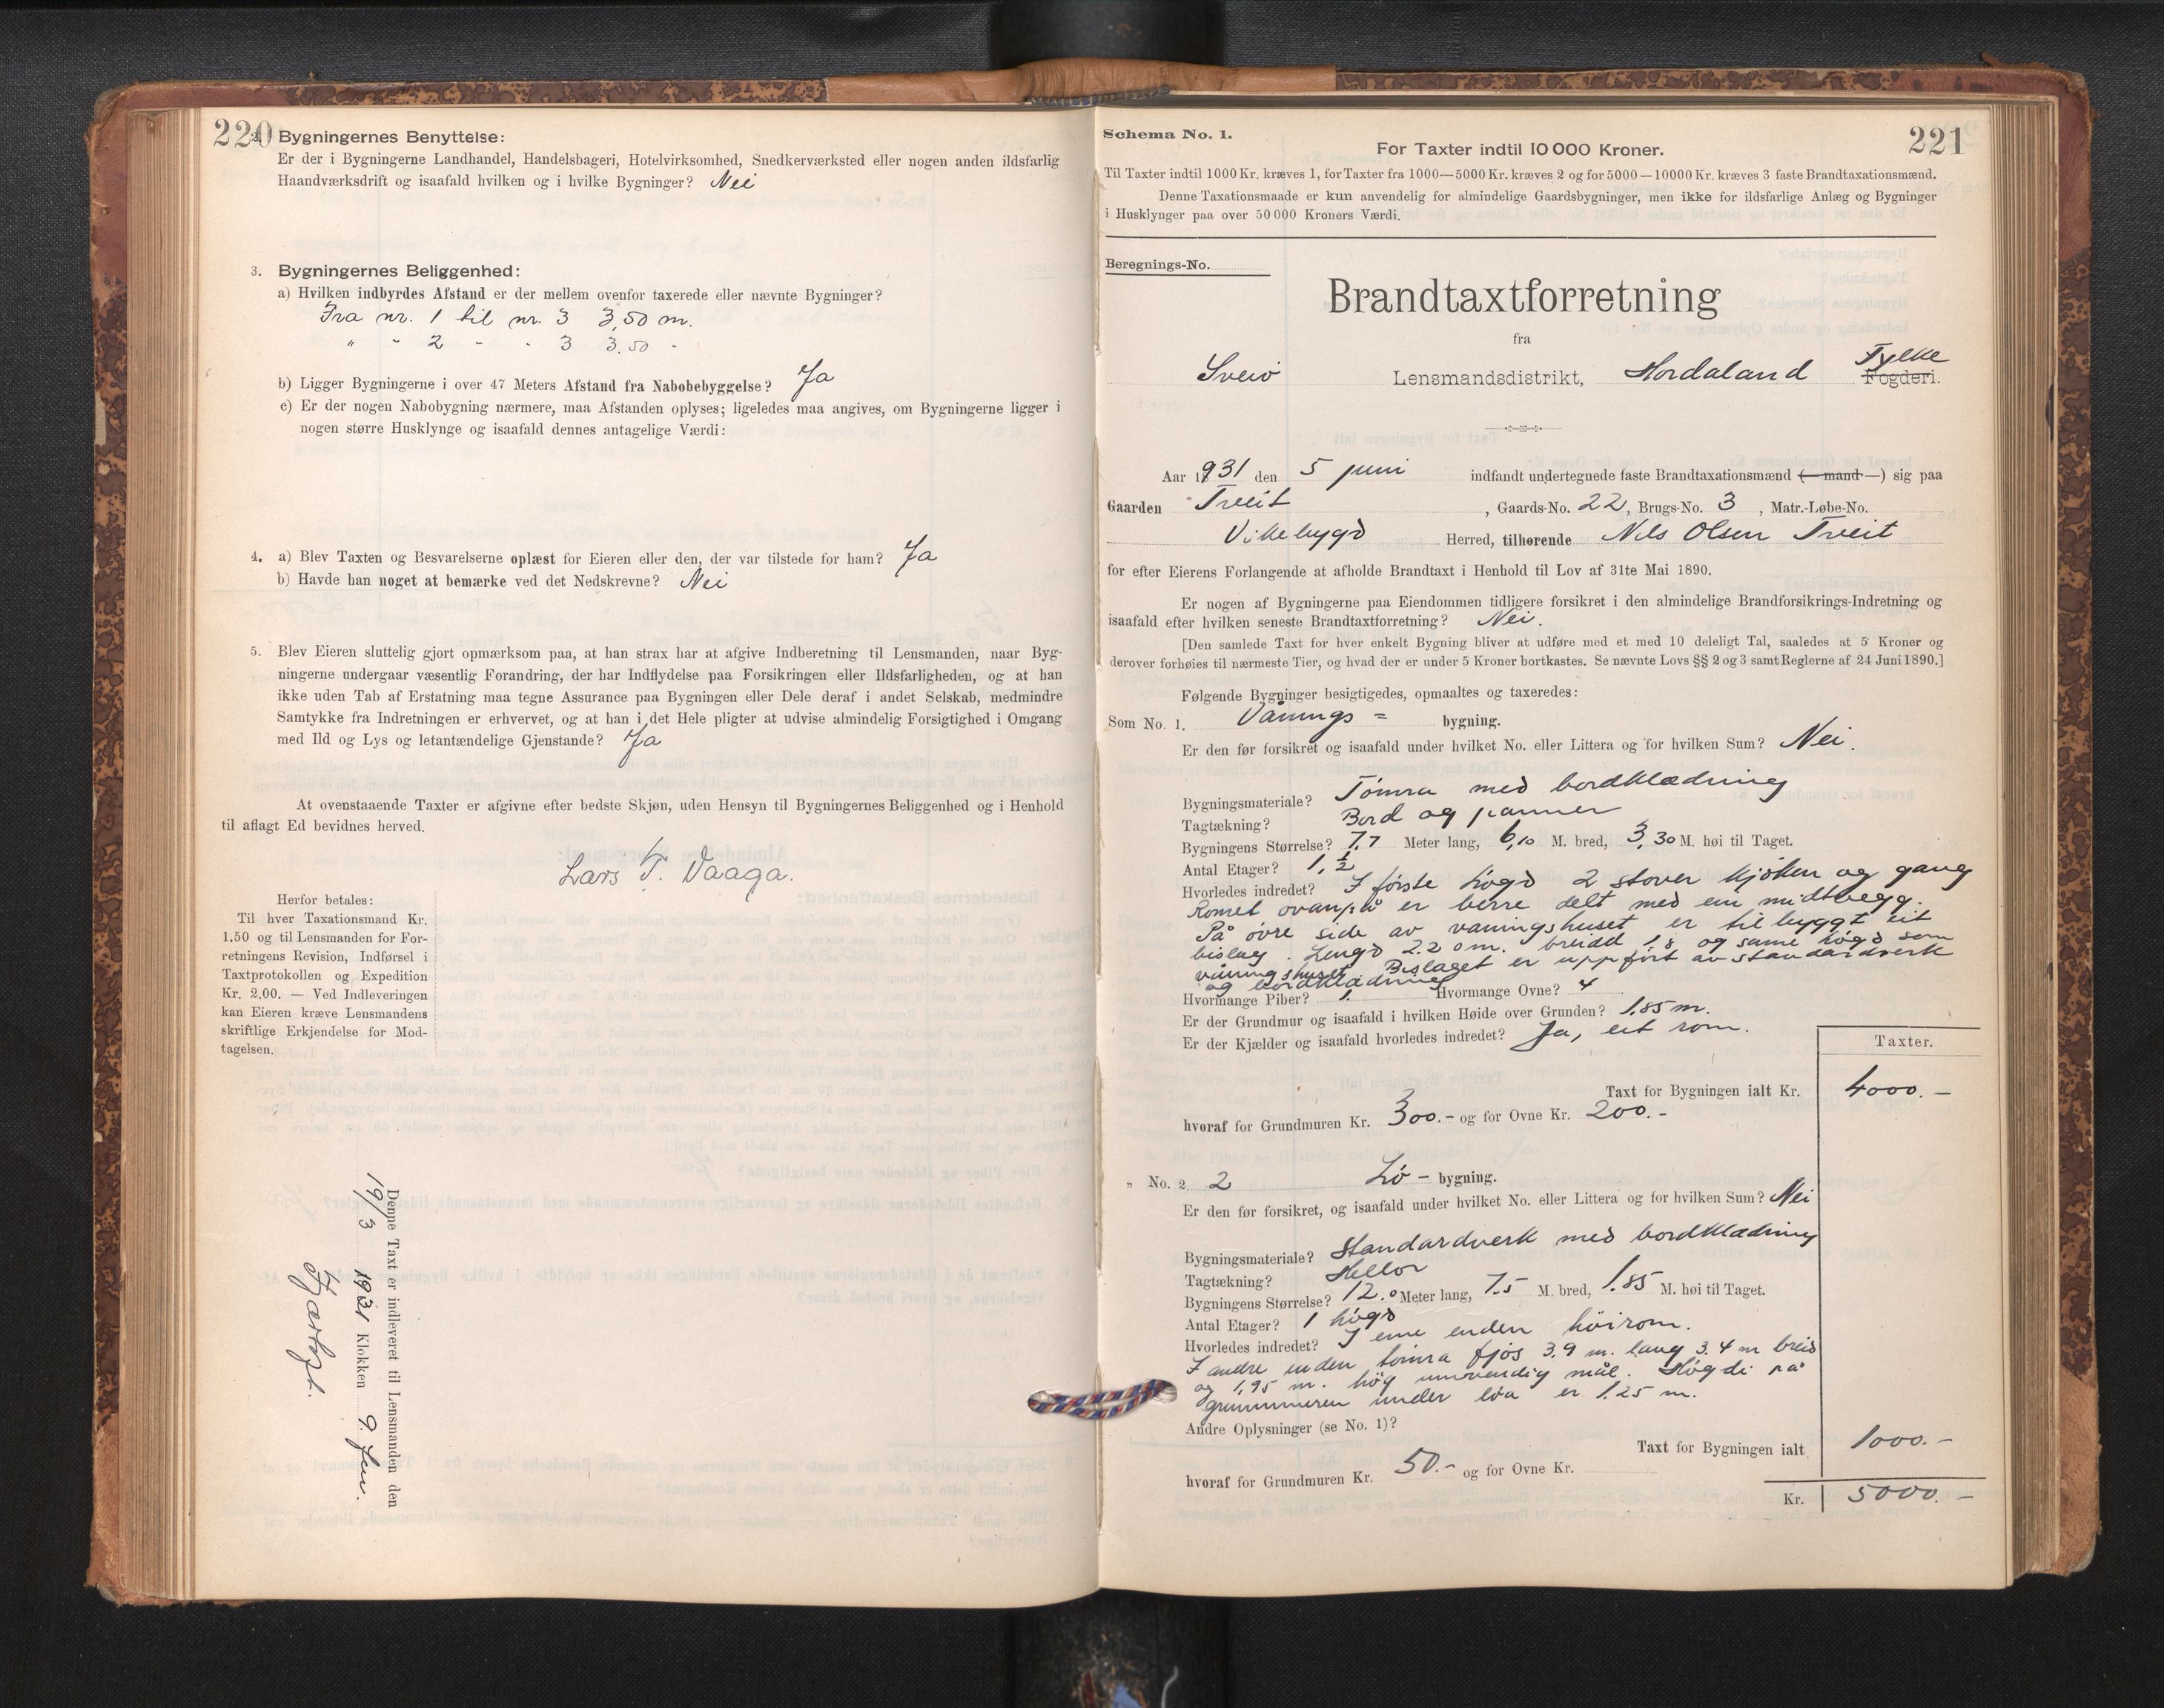 220
2. Bygningernes Benyttelse:
Er der i Bygningerne Landhandel, Handelsbageri, Hotelvirksomhed, Snedkerværksted eller nogen anden ildsfarlig
Haandværksdrift og isaafald hvilken og i hvilke Bygninger? Nei
3. Bygningernes Beliggenhed:
a) Hvilken indbyrdes Afstand er der mellem ovenfor taxerede eller nævnte Bygninger?
Fra nr. 1 til nr. 3 3,50 m.
" - 2 - - 3 3.50 -
b) Ligger Bygningerne i over 47 Meters Afstand fra Nabobebyggelse? Ja
c) Er der nogen Nabobygning nærmere, maa Afstanden oplyses; ligeledes maa angives, om Bygningerne ligger i
nogen større Husklynge og isaafald dennes antagelige Værdi:
4. a) Blev Taxten og Besvarelserne oplæst for Eieren eller den, der var tilstede for ham? Ja
b) Havde han noget at bemærke ved det Nedskrevne? Nei
5. Blev Eieren sluttelig gjort opmærksom paa, at han strax har at afgive Indberetning til Lensmanden, naar Byg-
ningerne undergaar væsentlig Forandring, der har Indflydelse paa Forsikringen eller Ildsfarligheden, og at han
ikke uden Tab af Erstatning maa tegne Assurance paa Bygningen eller Dele deraf i andet Selskab, medmindre
Samtykke fra Indretningen er erhvervet, og at han i det Hele pligter at udvise almindelig Forsigtighed i Omgang
med Ild og Lys og letantændelige Gjenstande? Ja
At ovenstaaende Taxter er afgivne efter bedste Skjøn, uden Hensyn til Bygningernes Beliggenhed og i Henhold
til aflagt Ed bevidnes herved.
Lars T. Vaaga.
Herfor betales:
Til hver Taxationsmand Kr.
1.50 og til Lensmanden for For-
retningens Revision, Indførsel i
Taxtprotokollen og Expedition
Kr. 2.00. — Ved Indleveringen
kan Eieren kræve Lensmandens
skriftlige Erkjendelse for Mod-
tagelsen.
Denne Taxt er indleveret til Lensmanden den
19/3 1931 Klokken 9. fm.
221
Schema No. 1.
For Taxter indtil 10 000 Kroner.
Til Taxter indtil 1000 Kr. kræves 1, for Taxter fra 1000—5000 Kr. kræves 2 og for 5000—10000 Kr. kræves 3 faste Brandtaxationsmænd.
Denne Taxationsmaade er kun anvendelig for almindelige Gaardsbygninger, men ikke for ildsfarlige Anlæg og Bygninger
i Husklynger paa over 50 000 Kroners Værdi.
Beregnings-No.
Brandtaxtforretning
fra
Sveio Lensmandsdistrikt, Hordaland Fylke Fogderi.
Aar 1931 den 5 juni indfandt undertegnede faste Brandtaxationsmænd (— mand —) sig paa
Gaarden Tveit, Gaards-No. 22, Brugs-No. 3, Matr.-Løbe-No.
Vikebygd Herred, tilhørende Nils Olsen Tveit
for efter Eierens Forlangende at afholde Brandtaxt i Henhold til Lov af 31te Mai 1890.
Er nogen af Bygningerne paa Eiendommen tidligere forsikret i den almindelige Brandforsikrings-Indretning og
isaafald efter hvilken seneste Brandtaxtforretning? Nei.
[Den samlede Taxt for hver enkelt Bygning bliver at udføre med et med 10 deleligt Tal, saaledes at 5 Kroner og
derover forhøies til nærmeste Tier, og hvad der er under 5 Kroner bortkastes. Se nævnte Lovs §§ 2 og 3 samt Reglerne af 24 Juni 1890.]
Følgende Bygninger besigtigedes, opmaaltes og taxeredes:
Som No. 1. Vånings = bygning.
Er den før forsikret og isaafald under hvilket No. eller Littera og for hvilken Sum? Nei.
Bygningsmateriale? Tømra med bordklædning
Tagtækning? Bord og panner
Bygningens Størrelse? 7,7 Meter lang, 6,10 M. bred, 3,30 M. høi til Taget.
Antal Etager? 1,½
Hvorledes indredet? I første høgd 2 stover kjøken og gang
Romet ovanpå er berre delt med ein midtvegg.
På øvre side av våningshuset er tilbyggt eit
bislag. Lengd 2.20 m. breidd 1.8 og same høgd som
våningshuset. Bislaget er uppført av standardverk
og bordklædning
Hvormange Piber? 1. Hvormange Ovne? 4
Er der Grundmur og isaafald i hvilken Høide over Grunden? 1,85 m.
Er der Kjælder og isaafald hvorledes indredet? Ja, eit rom.
Taxter.
Taxt for Bygningen ialt Kr. 4000.-
hvoraf for Grundmuren Kr. 300.- og for Ovne Kr. 200.-
" No. 2 2 Lø - bygning.
Er den før forsikret, og isaafald under hvilket No. eller Littera og for hvilken Sum? Nei
Bygningsmateriale? Standardverk med bordklædning
Tagtækning? Hellor
Bygningens Størrelse? 12.0 Meter lang, 7.5 M. bred, 1.85 M. høi til Taget.
Antal Etager? 1 høgd
Hvorledes indredet? I eine enden høirom.
I andre enden tømra fjøs 3.9 m. lang 3.4 m breid
og 1,95 m. høg innvendig mål. Høgdi på
grunnmuren under løa er 1.25 m.
Andre Oplysninger (se No. 1)?
Taxt for Bygningen ialt 1000.-
hvoraf for Grundmuren Kr. 50.- og for Ovne Kr.
Kr. 5000.-